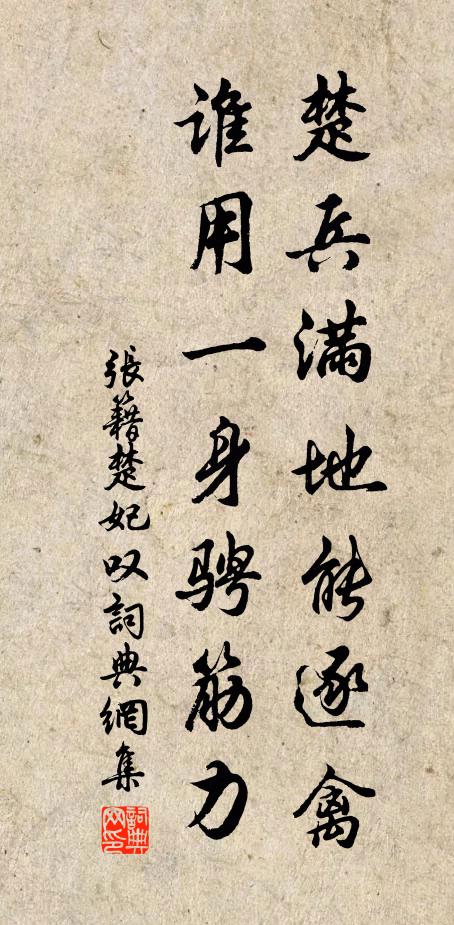 楚兵滿地能逐禽
誰用一身騁筋力
張籍楚妃叹詞典網集
詞典网印